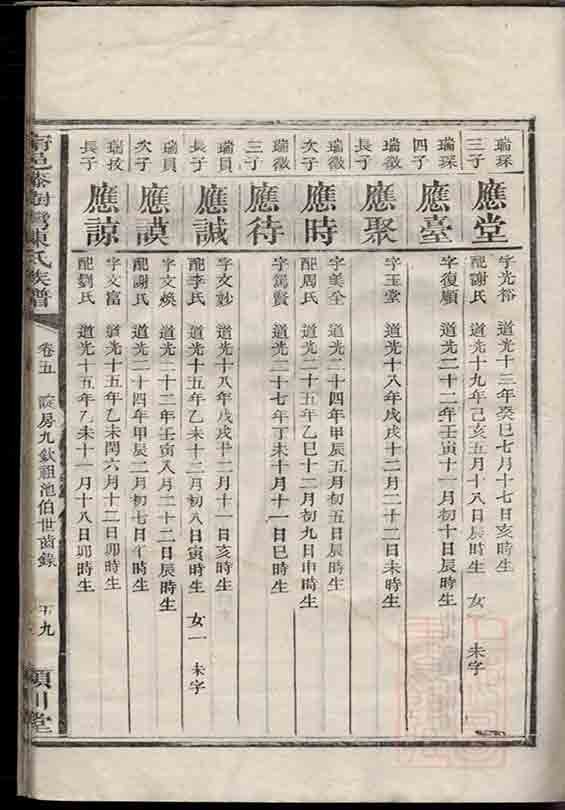 瑞琛
三子
應堂
字光裕 道光十三年癸巳七月十七日亥時生
配謝氏 道光十九年己亥五月十八日辰時生 女一 未字
瑞琛
四子
應臺
字復顯 道光二十二年壬寅十一月初十日辰時生
瑞徵
長子
應聚
字玉堂 道光十八年戊戌十二月二十二日未時生
瑞徵
次子
應時
字美全 道光二十四年甲辰五月初五日辰時生
配周氏 道光二十五年乙巳十二月初九日申時生
瑞徵
三子
應待
字寫賢 道光二十七年丁未十月十一日巳時生
瑞員
長子
應誠
字文妙 道光十八年戊戌十二月十一日亥時生
配李氏 道光十五年乙未十二月初八日寅時生 女一 未字
瑞員
次子
應謨
字文煥 道光二十二年壬寅八月二十二日辰時生
配謝氏 道光二十四年甲辰二月初七日午時生
瑞技
長子
應諒
字文富 道光十五年乙未閏六月十二日卯時生
配劉氏 道光十五年乙未十一月十八日卯時生
陳氏族譜
卷五 房九欽祖池伯世齒錄
九
潁川堂